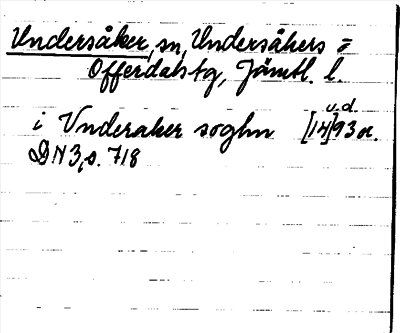 Undersåker, sn, Undersåkers =
Offerdals tg, Jämtl. l.
u.d.
i Vnderaker soghn [14]93 or.
DN 3, s. 718